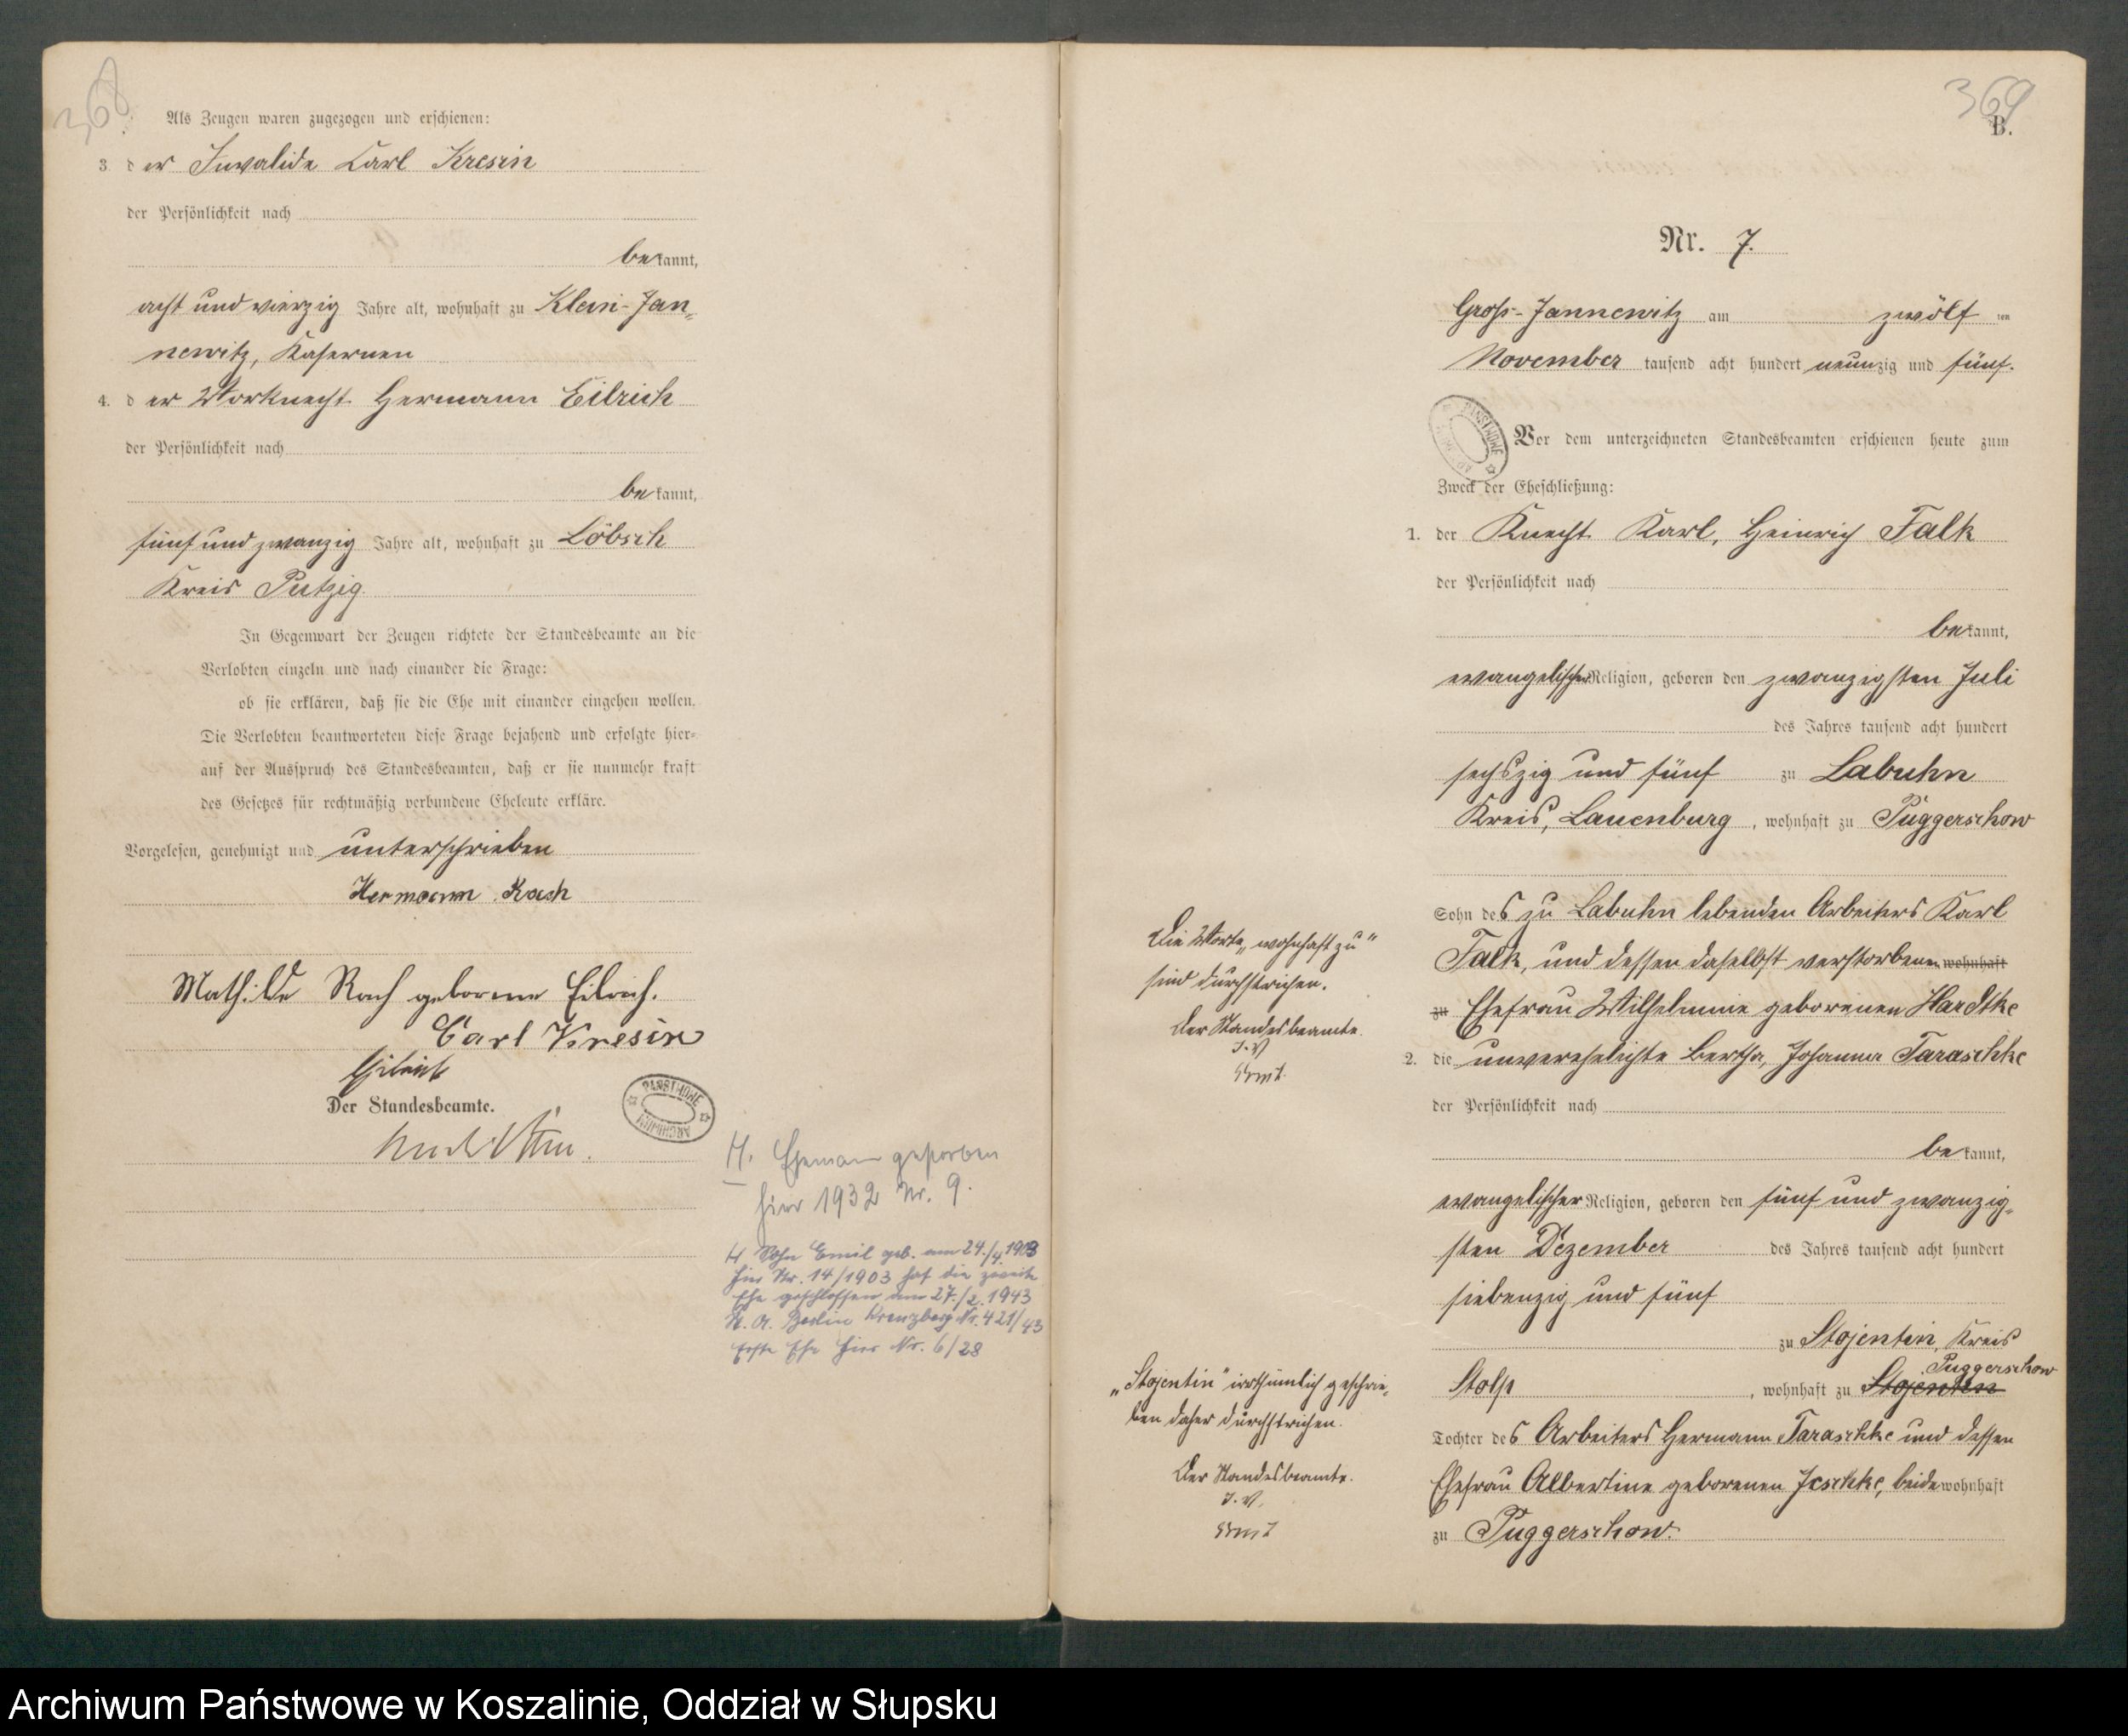 368
Als Zeugen waren zugezogen und erschienen:
3. der Invalide Carl Kresin
der Persönlichkeit nach
bekannt,
acht und vierzig Jahre alt, wohnhaft zu Klein-Jan„
newitz, Kasernen
4. der Vorknecht Hermann Eilrich
der Persönlichkeit nach
bekannt,
fünf und zwanzig Jahre alt, wohnhaft zu Löbsch
Kreis Putzig.
In Gegenwart der Zeugen richtete der Standesbeamte an die
Verlobten einzeln und nach einander die Frage:
ob sie erklären, daß sie die Ehe mit einander eingehen wollen.
Die Verlobten beantworteten diese Frage bejahend und erfolgte hier-
auf der Ausspruch des Standesbeamten, daß er sie nunmehr kraft
des Gesetzes für rechtmäßig verbundene Eheleute erkläre.
Vorgelesen, genehmigt und unterschrieben
Hermann Rach
Mathilde Rach geborene Eilrich.
Carl Kresin
Eilrich
Der Standesbeamte.
PAŃSTWOWE
ARCHIWUM
H. Ehemann gestorben
hier 1932 Nr. 9.
H Sohn Emil geb. am 24./4. 1903
hier Nr. 14/1903 hat die zweite
Ehe geschlossen am 27./2. 1943
St. A. Berlin Kreuzberg Nr. 421/43
Erste Ehe hier Nr. 6/28
369
B.
Nr. 7.
Gross-Jannewitz am zwölf ten
November tausend acht hundert neunzig und fünf.
PAŃSTWOWE
Vor dem unterzeichneten Standesbeamten erschienen heute zum
Zweck der Eheschließung:
1. der Knecht Karl, Heinrich Falk
der Persönlichkeit nach
bekannt,
evangelischer Religion, geboren den zwanzigsten Juli
des Jahres tausend acht hundert
sechszig und fünf zu Labuhn
Kreis, Lauenburg, wohnhaft zu Puggerschow
Sohn des zu Labuhn lebenden Arbeiters Karl
Falk, und dessen daselbst verstorbenen wohnhaft
zu Ehefrau Wilhelmine geborenen Hardtke
Die Worte „wohnhaft zu"
sind durchstrichen.
Der Standesbeamte.
I. V
2. die unverehelichte Bertha, Johanna Taraschke
der Persönlichkeit nach
bekannt,
evangelischer Religion, geboren den fünf und zwanzig„
sten Dezember des Jahres tausend acht hundert
siebenzig und fünf
zu Stojentin, Kreis
Puggerschow
Stolp, wohnhaft zu Stojentin
Tochter des Arbeiters Hermann Taraschke und dessen
Ehefrau Albertine geborenen Jeschke, beide wohnhaft
zu Puggerschow.
„Stojentin" irrthümlich geschrie„
ben daher durchstrichen.
Der Standesbeamte.
I. V.
Archiwum Państwowe w Koszalinie, Oddział w Słupsku